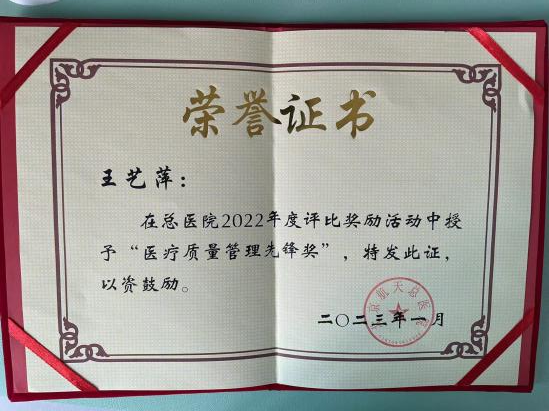 荣誉证书
王艺萍：
在总医院2022年度评比奖励活动中授
予“医疗质量管理先锋奖”，特发此证，
以资鼓励。
京航天总医院
二〇二三年一月